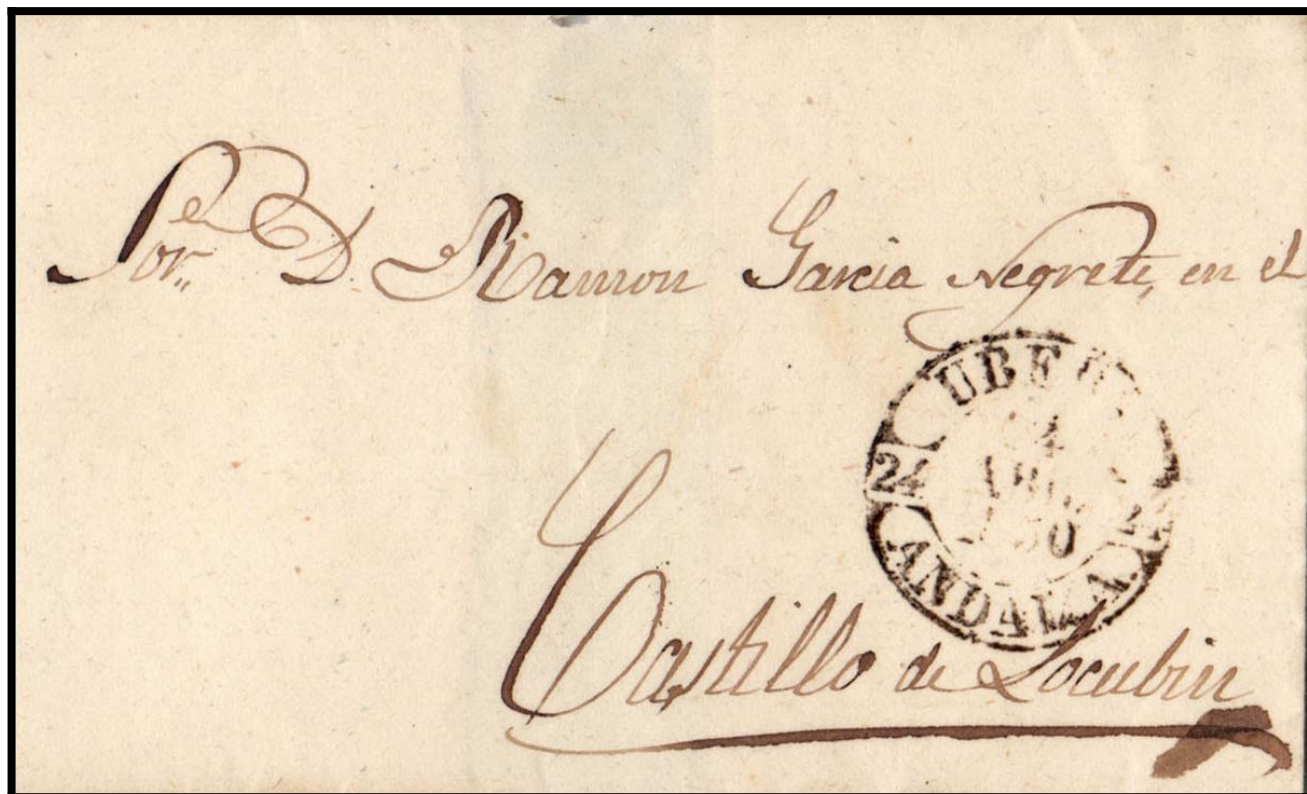 Sor. D. Ramon Garcia Negrete, en el
UBEDA
24
ANDAL.A.
Castillo de Locubin